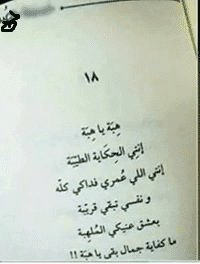 ١٨
هِبَة يا هِبَة
إنتي الحِكاية الطيّبَة
إنتي اللي عُمري فداكي كلّه
و نفسي تبقي قريّبَة
بعشق عنيكي المُلهِبَة
ما كفاية جمال بقى يا هَبَة !!